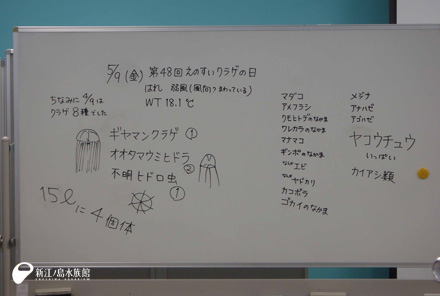 5/9 (金) 第48回 えのすいクラゲの日
はれ 弱風
WT 18.1℃
ちなみに 4/9は
クラゲ 8種でした
ギヤマンクラゲ ①
オオタマウミヒドラ ②
不明ヒドロ虫 ①
15ℓに4個体
マダコ
アメフラシ
クモヒトデのなかま
ワレカラのなかま
マナマコ
ギンポのなかま
エビ
ヤドカリ
カコボラ
ゴカイのなかま
メジナ
アナハゼ
アゴハゼ
ヤコウチュウ
いっぱい
カイアシ類
新江ノ島水族館